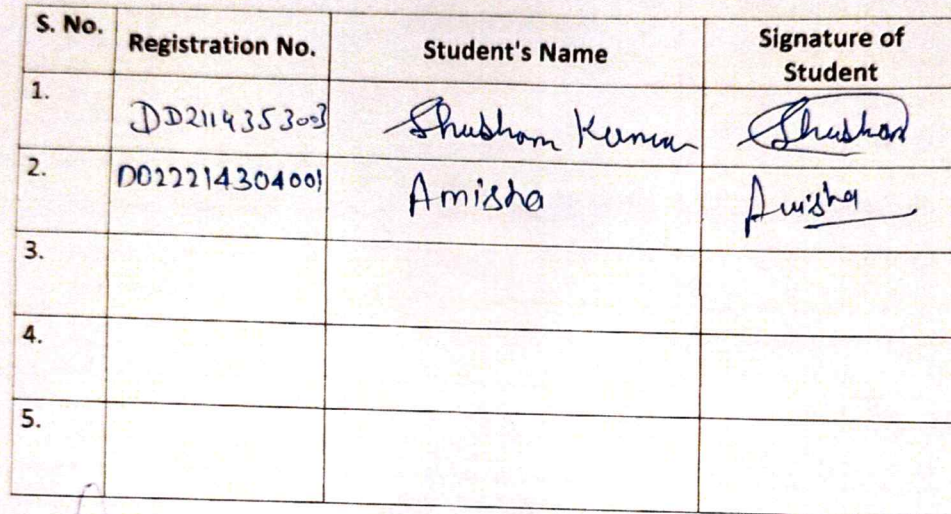 S. No. Registration No. Student's Name Signature of Student
1. DD2114353003 Shubham Kumar Shubham
2. DD22214304001 Amisha Amisha
3.
4.
5.